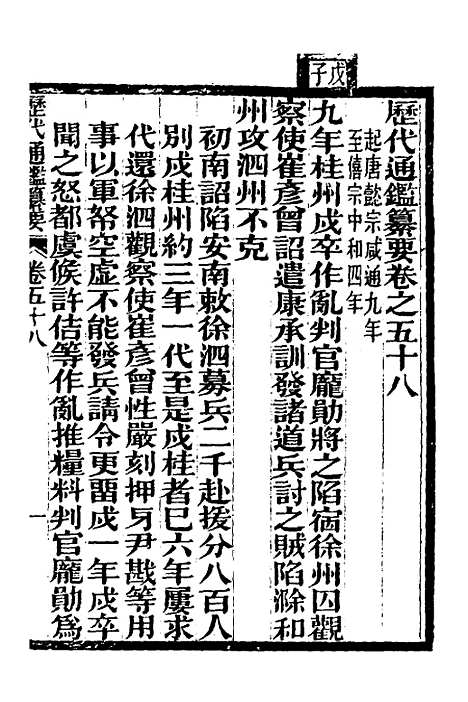 戊子
歷代通鑑纂要卷之五十八
起唐懿宗咸通九年
至僖宗中和四年
九年桂州戍卒作亂判官龐勛將之陷宿徐州囚觀
察使崔彥曾詔遣康承訓發諸道兵討之賊陷滁和
州攻泗州不克
初南詔陷安南敕徐泗募兵二千赴援分八百人
別戍桂州約三年一代至是戍桂者巳六年屢求
代還徐泗觀察使崔彥曾性嚴刻押牙尹戡等用
事以軍帑空虛不能發兵請令更畱戍一年戍卒
聞之怒都虞候許佶等作亂推糧料判官龐勛爲
歷代通鑑纂要 卷五十八 一